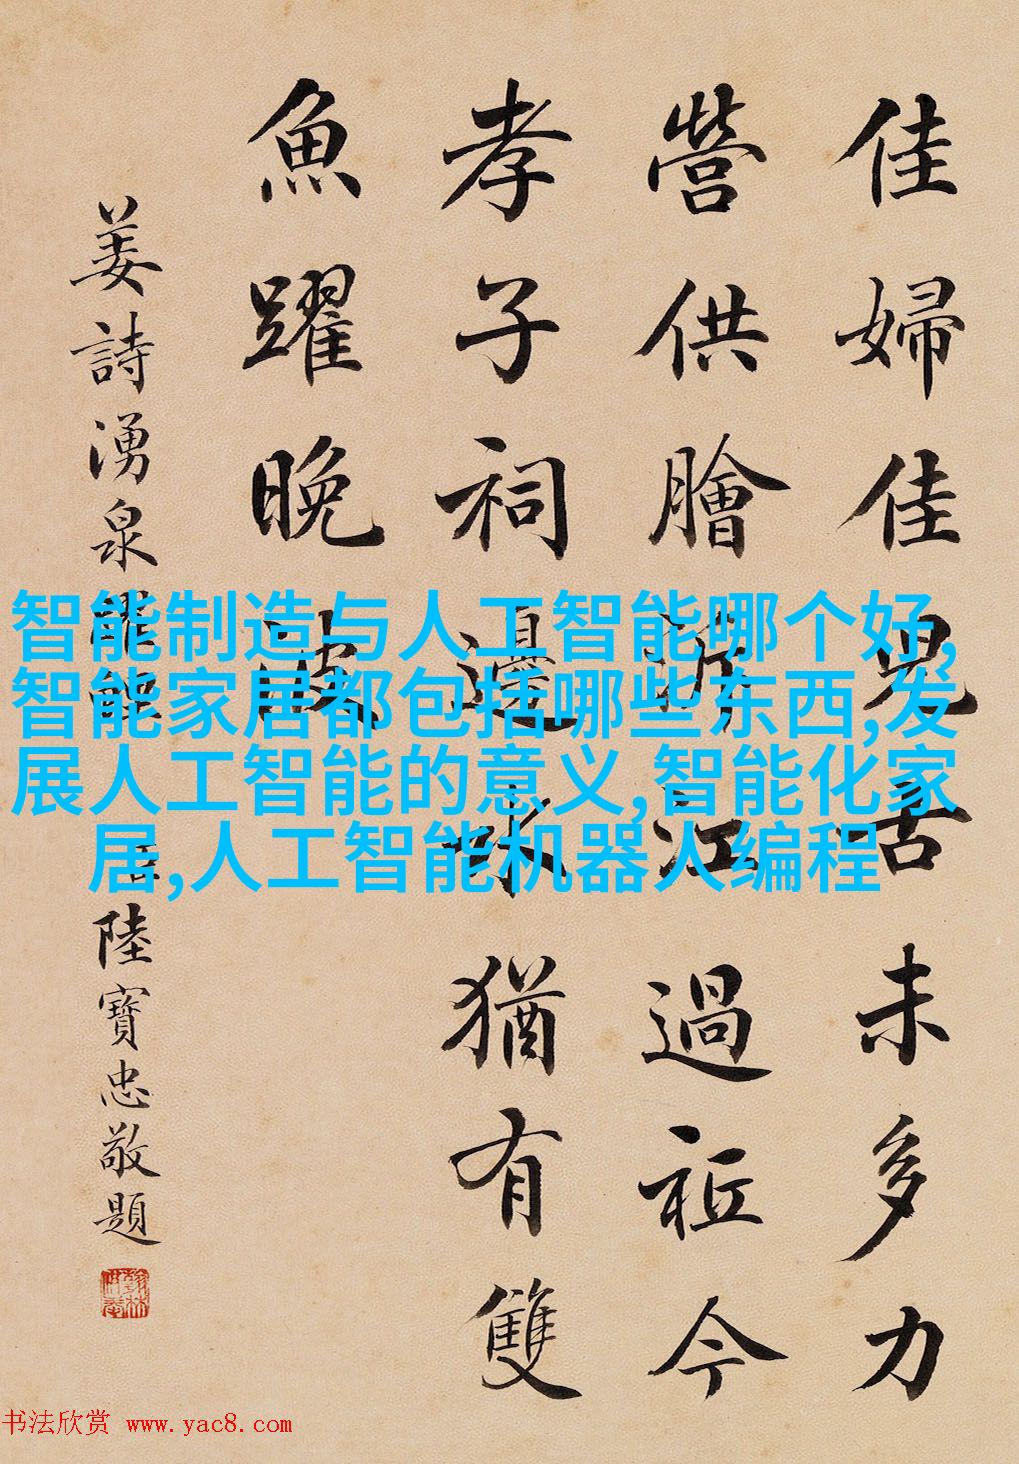 佳婦佳兒古未多力
營供膾江過祇今
孝子祠邊水猶有雙
魚躍晚波
姜詩湧泉躍鯉 臣陸寶忠敬題
智能制造与人工智能哪个好,
智能家居都包括哪些东西,发
展人工智能的意义,智能化家
居,人工智能机器人编程
书法欣赏 www.yac8.com